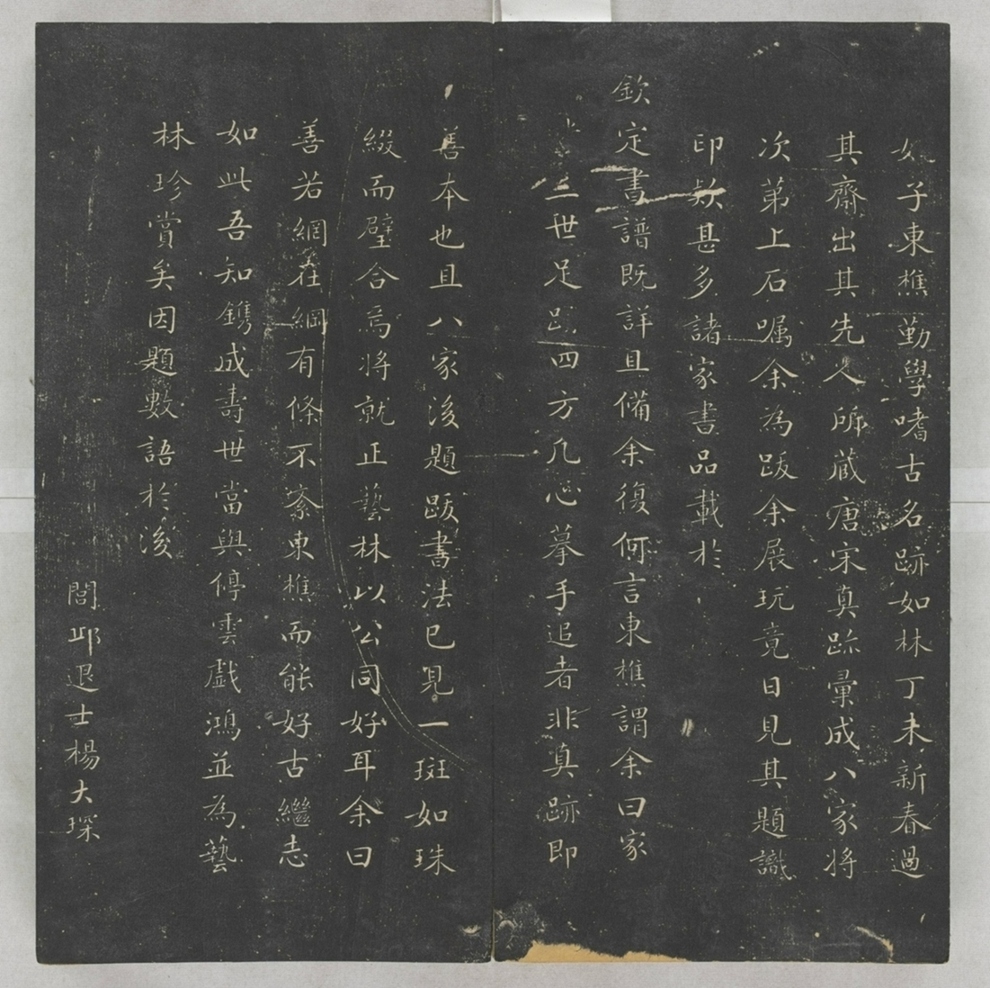 子東樵勤學嗜古名跡如林丁未新春過
其齋出其先人所藏唐宋真跡彙成八家将
次第上石嘱余為跋余展玩竟日見其題識
印欵甚多諸家書品載於
欽定書譜既詳且備余復何言東樵謂余曰家
世足跡四方凡心摹手追者非真跡即
善本也且八家後題跋書法已見一斑如珠
綴而璧合焉将就正藝林以公同好耳余曰
善若網在綱有條不紊東樵而能好古繼志
如此吾知鐫成壽世當與停雲戲鴻並為藝
林珍賞矣因題數語於後
閭邱退士楊大琛